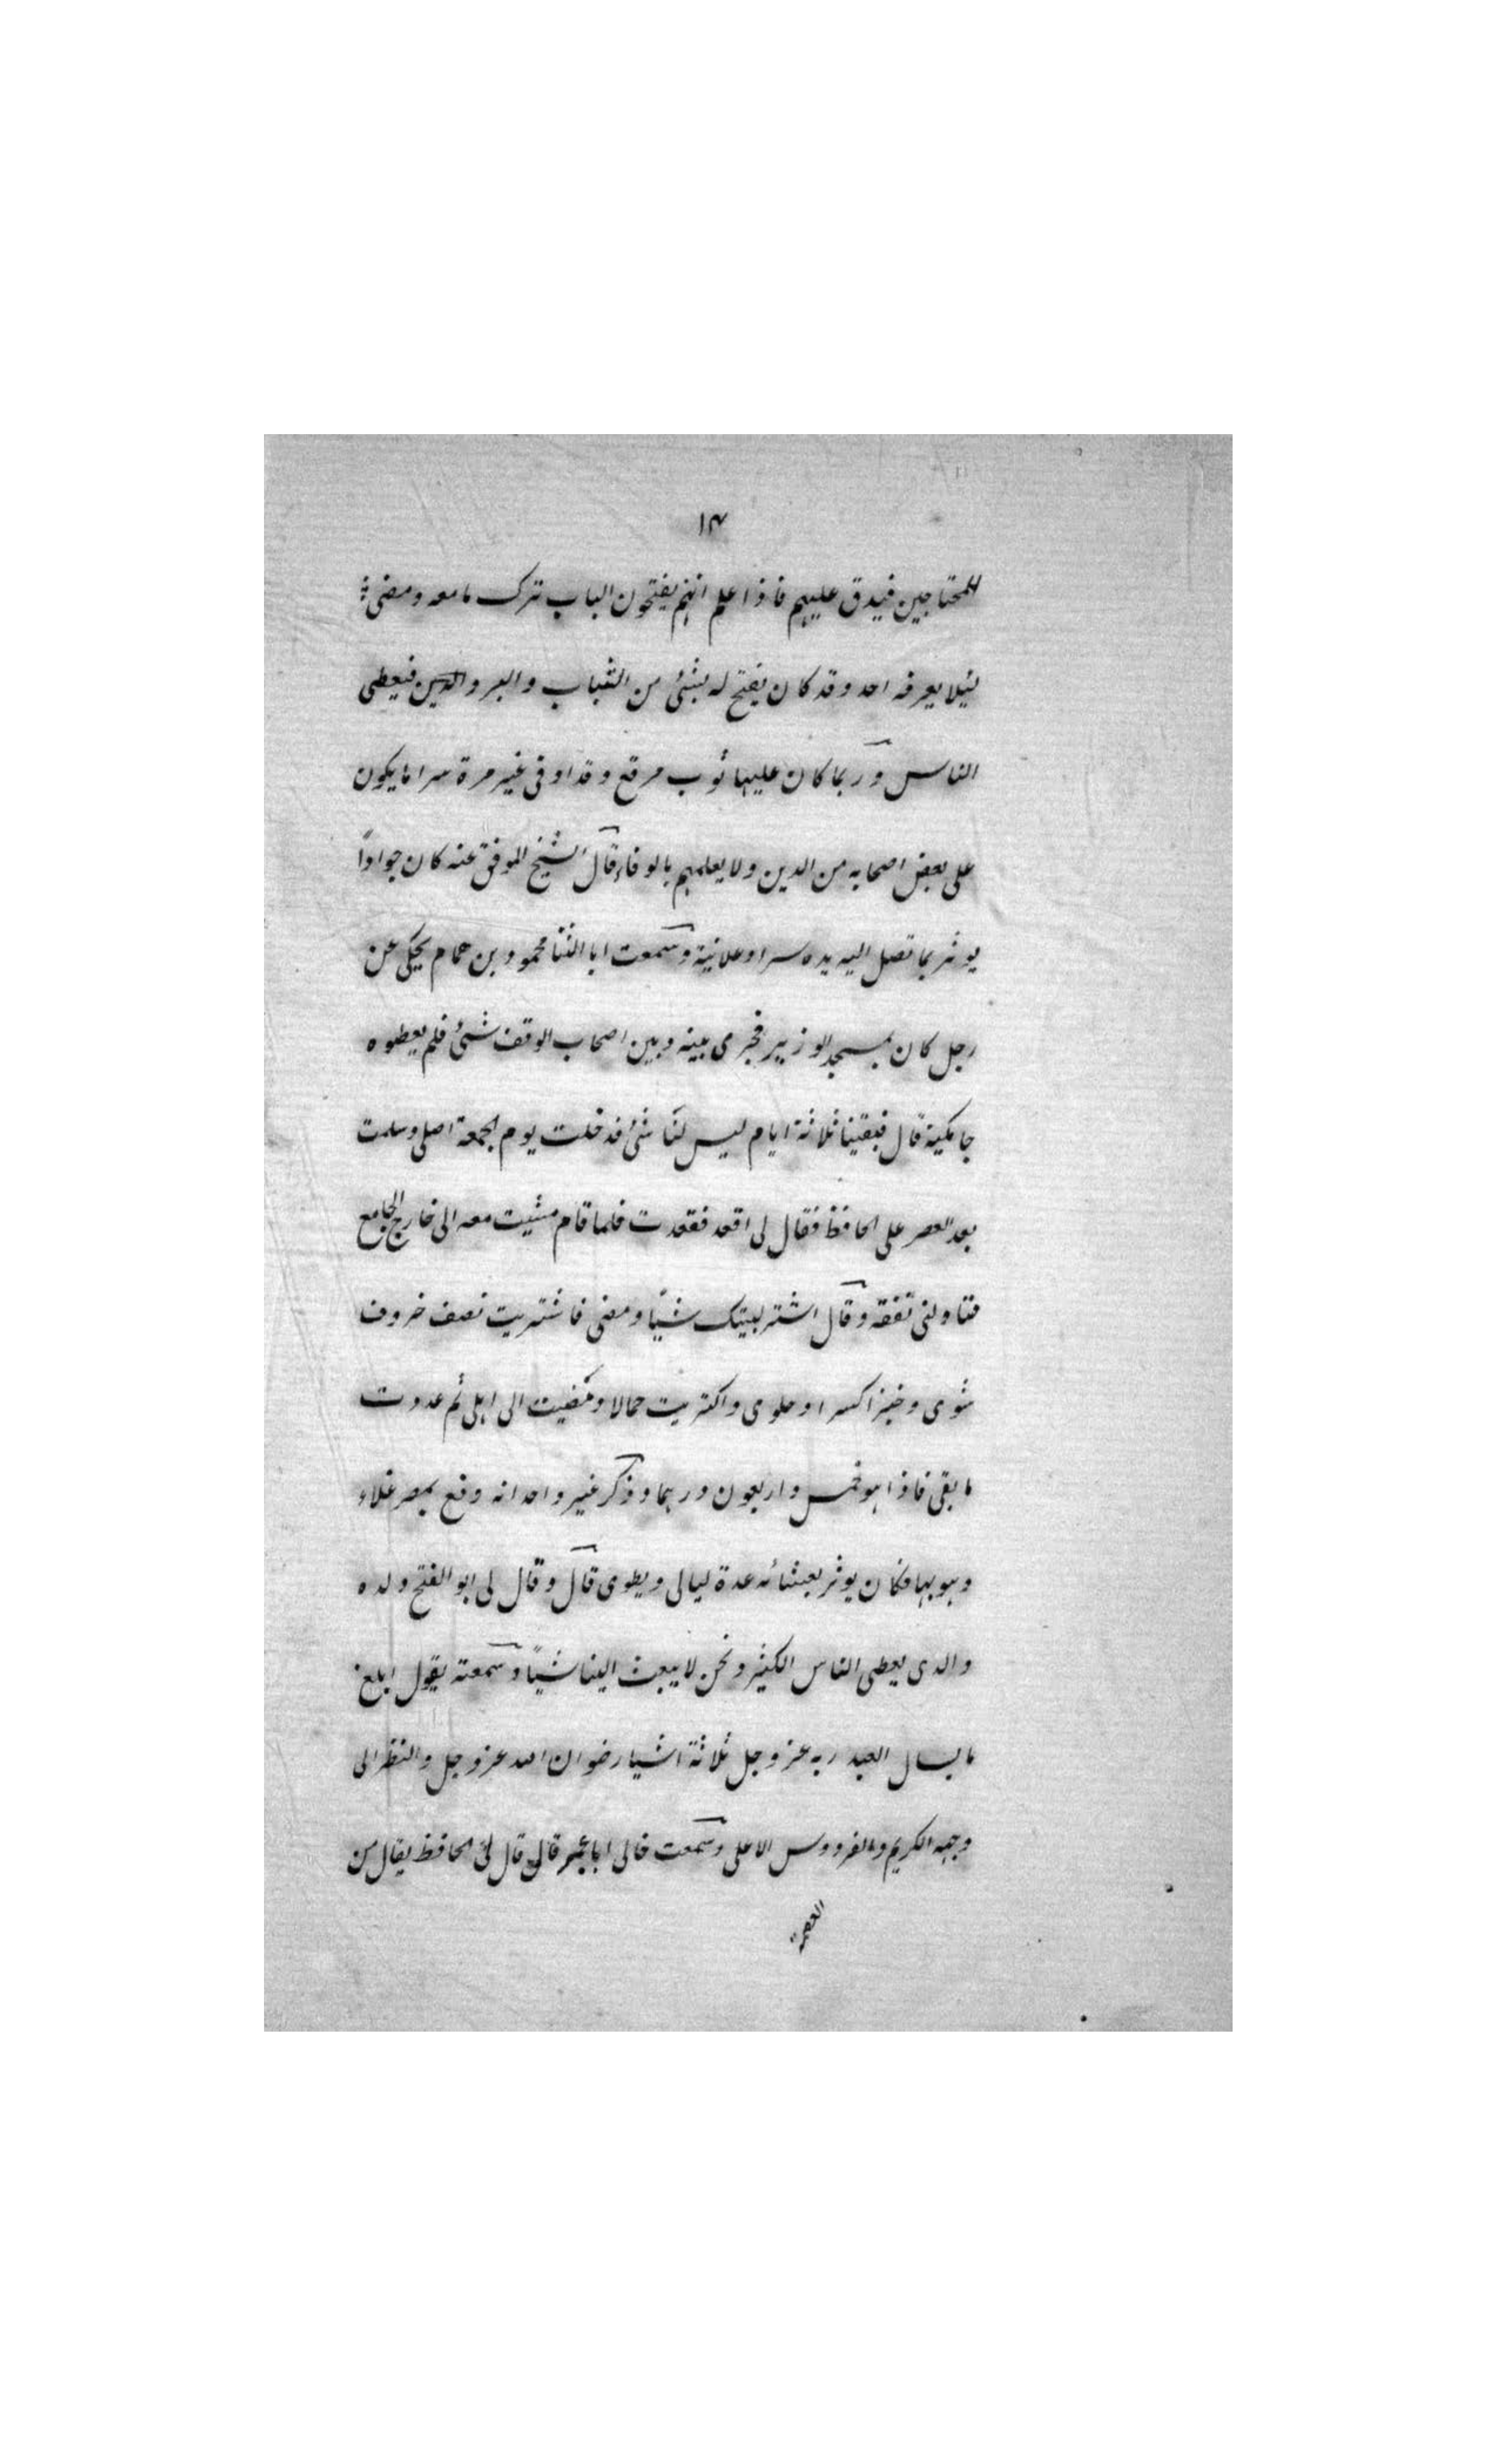 ١٣
للمحتاجين فيدق عليهم فاذا علم انهم يفتحون الباب ترك مامعه ومضى
ليئلا يعرفه احد وقد كان يفتح له بشئ من الثياب والبر والدين فيعطى
الناس وربما كان عليها ثوب مرقع وقد اوفى غير مرة سرا ما يكون
على بعض اصحابه من الدين ولا يعلمهم بالوفاء قال الشيخ الموفق عنه كان جوادًا
يوثر بما تصل اليه يده سرا وعلانية وسمعت ابا الثنا محمود بن همام يحكى عن
رجل كان بمسجد الوزير فجرى بينه وبين اصحاب الوقف شئ فلم يعطوه
جامكية قال فبقينا ثلاثة ايام ليس لنا شئ فدخلت يوم الجمعة اصلى وسلمت
بعد العصر على الحافظ فقال لى اقعد فقعدت فلما قام مشيت معه الى خارج الجامع
فناولنى نفقة وقال اشتر لبيتك شيًا ومضى فاشتريت نصف خروف
شوى وخبزا كسرا وحلوى واكتريت حمالا ومضيت الى اهلى ثم عددت
ما بقى فاذا هو خمس واربعون درهما وذكر غير واحد انه وقع بمصر غلاء
وهو بها فكان يوثر بعشائه عدة ليالى ويطوى قال وقال لى ابو الفتح ولده
والدى يعطى الناس الكثير ونحن لا يبعث الينا شيًا وسمعته يقول ابلغ
ما يسال العبد ربه عز وجل ثلاثة اشيا رضوان الله عز وجل والنظر الى
وجهه الكريم والفردوس الاعلى وسمعت خالى ابا عمر قال قال لى الحافظ يقال من
العصمة